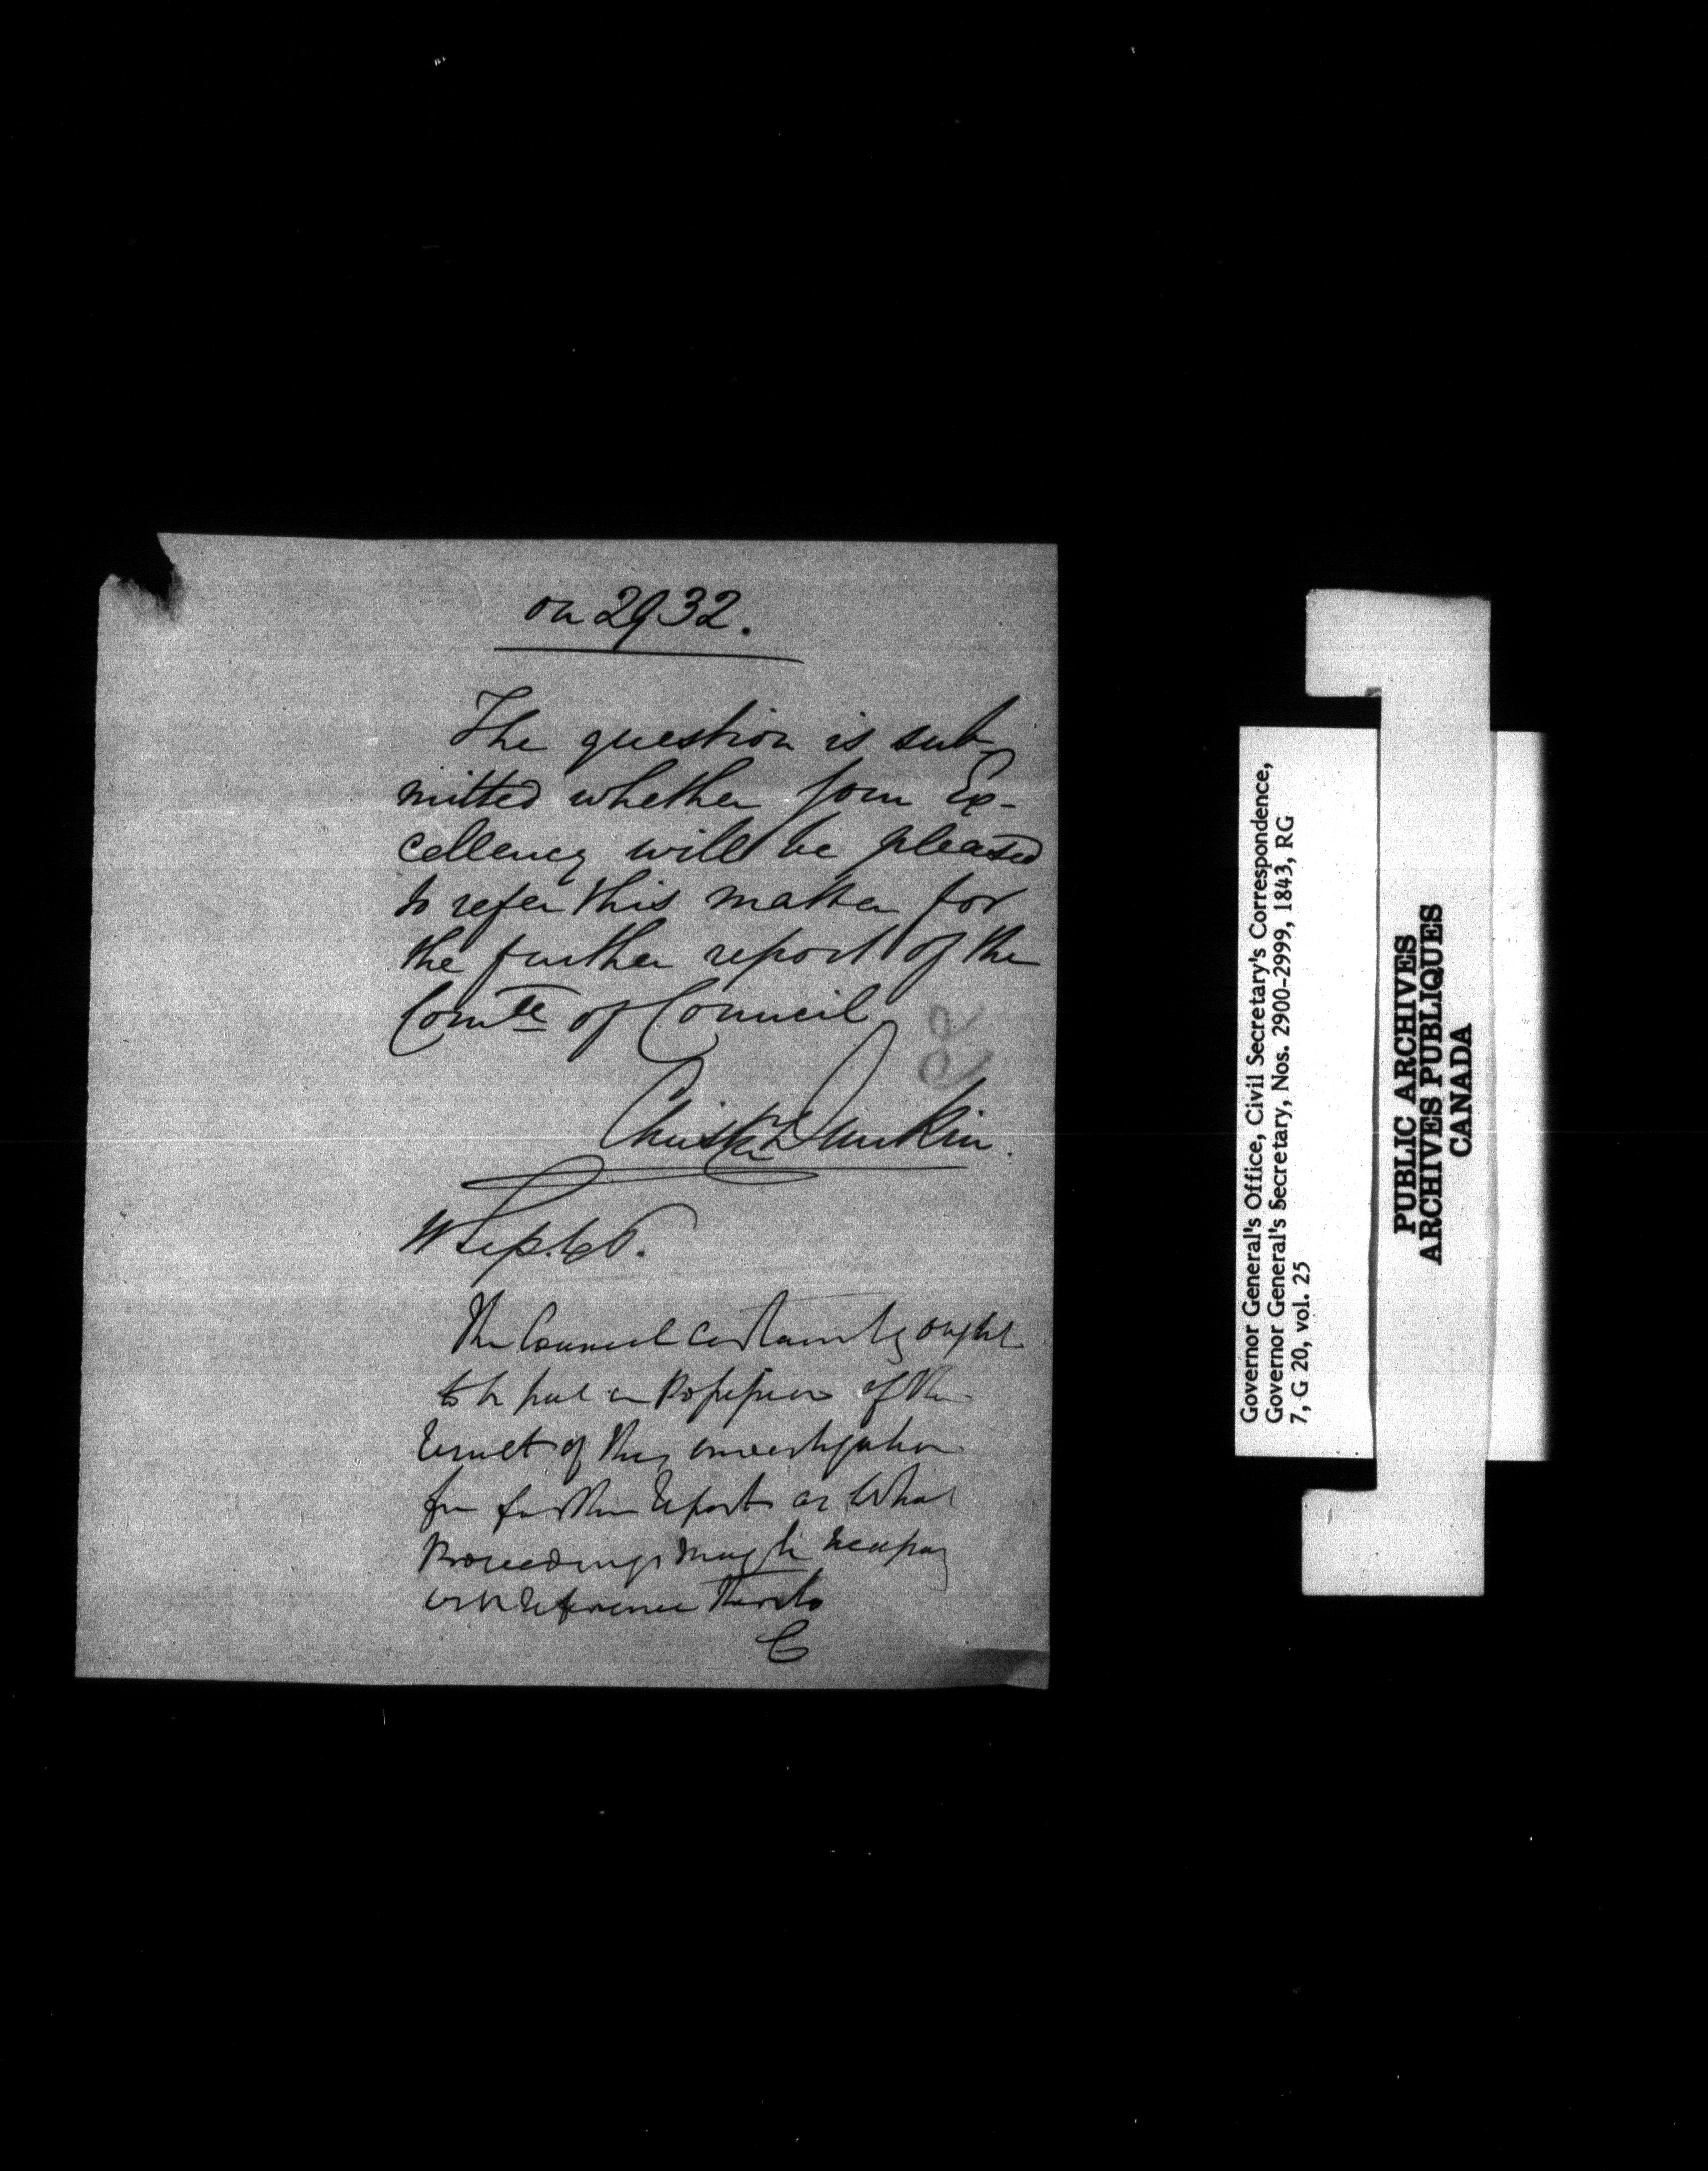 on 2932.
The question is sub-
mitted whether Your Ex-
cellency will be pleased
to refer this matter for
the further report of the
Comtee of Council.
Christr Dunkin.
11 Sep.
The Council certainly ought
to be put in Possession of the
result of this investigation
for further Report as What
Proceedings may be necessary
with reference thereto
C
Governor General's Office, Civil Secretary's Correspondence,
Governor General's Secretary, Nos. 2900-2999, 1843, RG
7, G 20, vol. 25
PUBLIC ARCHIVES
ARCHIVES PUBLIQUES
CANADA